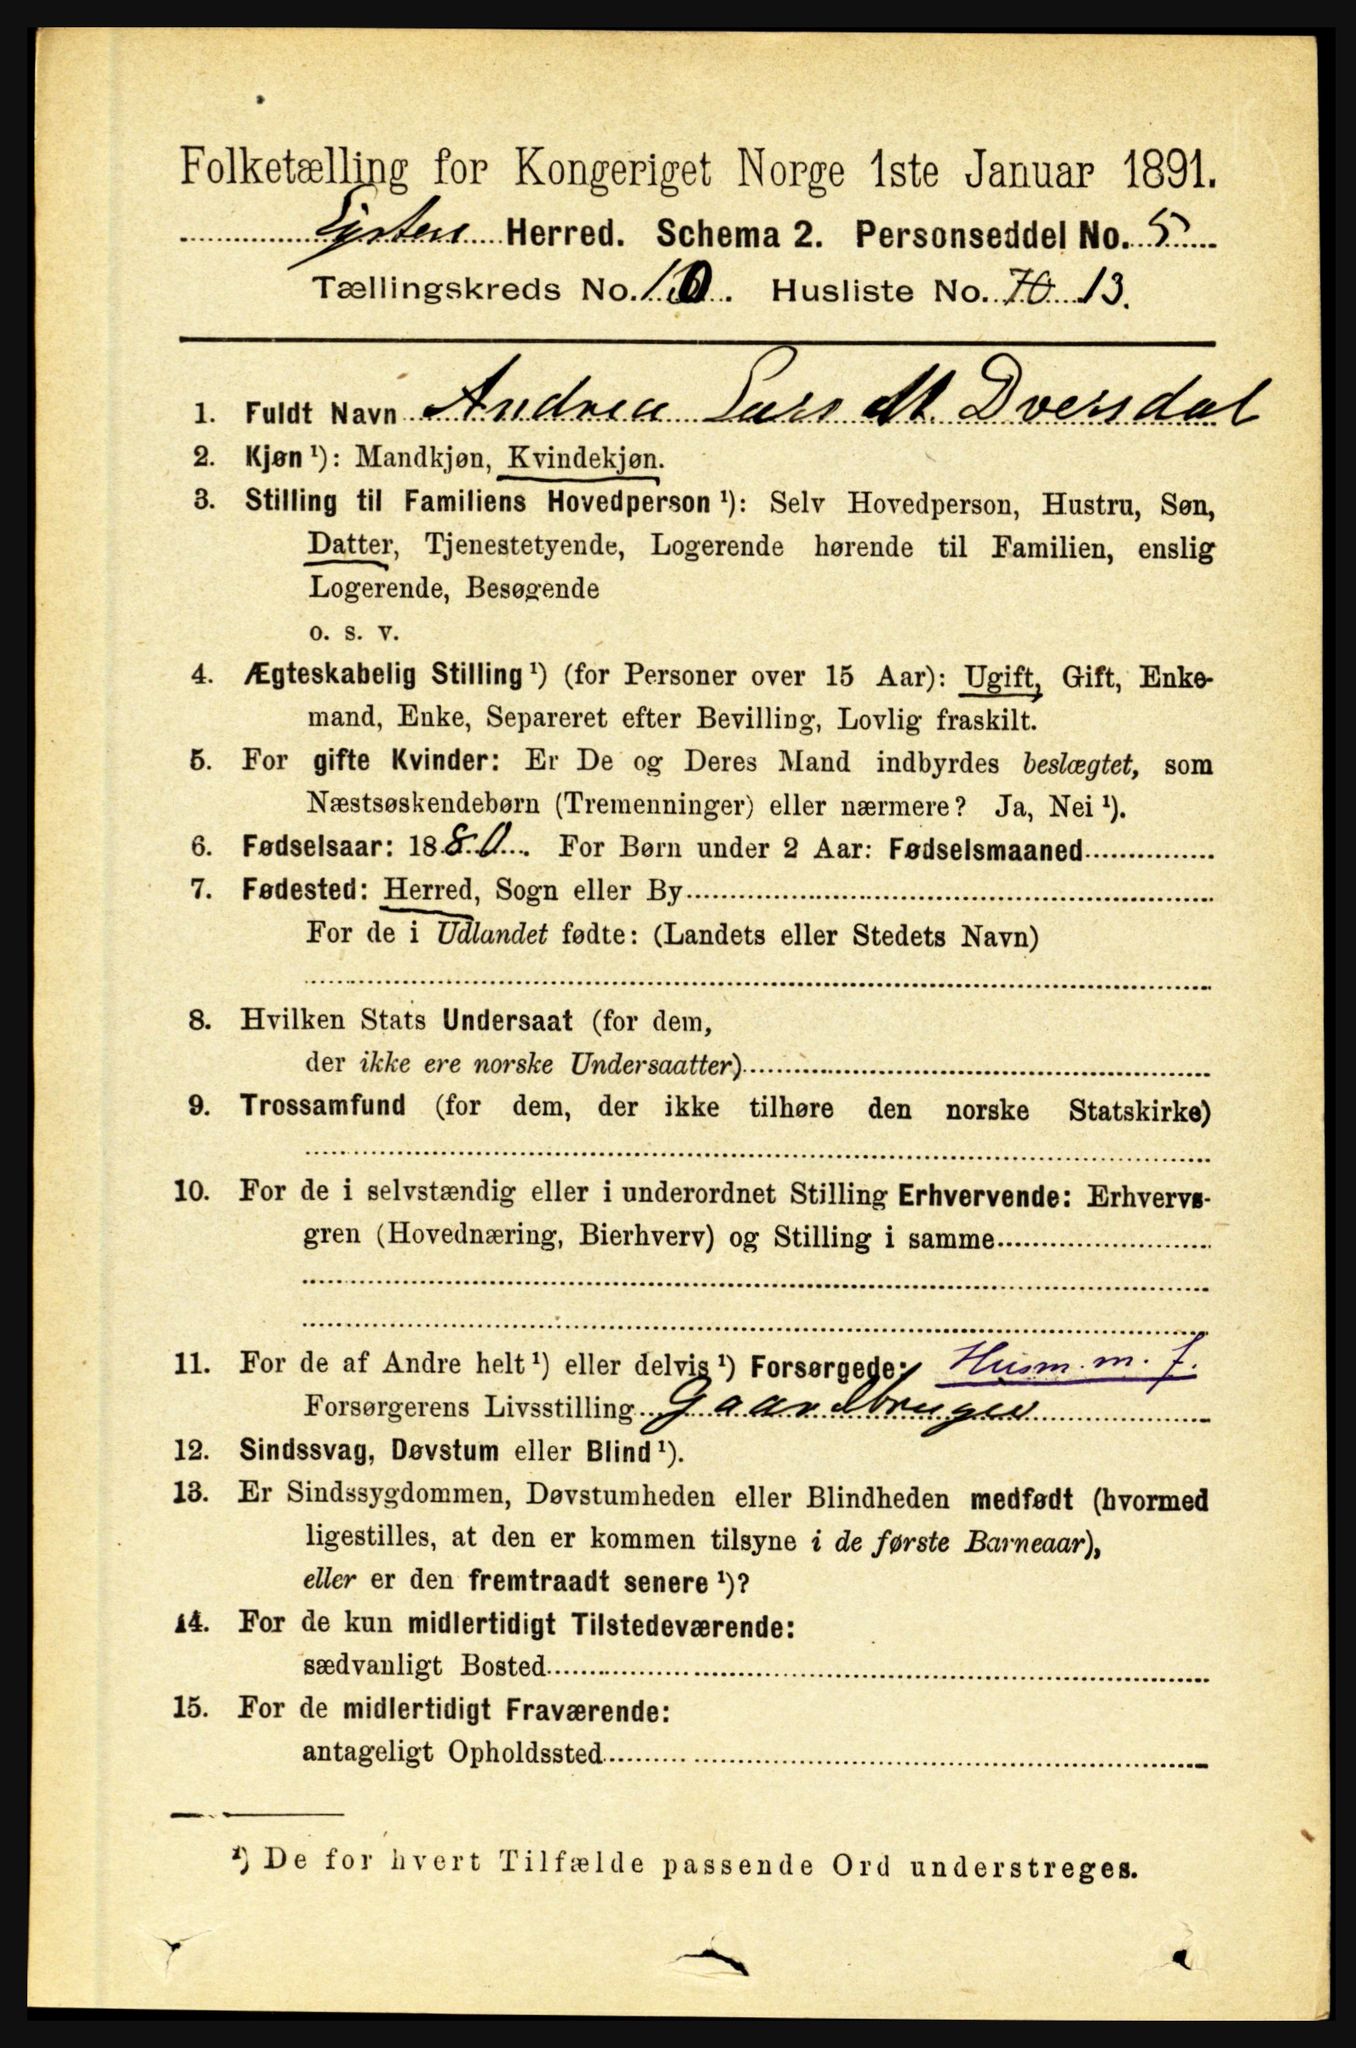 Folketælling for Kongeriget Norge 1ste Januar 1891.
Herred. Schema 2. Personseddel No. 5
Tællingskreds No. 10. Husliste No. 70 13.
1. Fuldt Navn Andrea Lars Dversdal
2. Kjøn ¹): Mandkjøn, Kvindekjøn.
3. Stilling til Familiens Hovedperson ¹): Selv Hovedperson, Hustru, Søn,
Datter, Tjenestetyende, Logerende hørende til Familien, enslig
Logerende, Besøgende
o. s. v.
4. Ægteskabelig Stilling ¹) (for Personer over 15 Aar): Ugift, Gift, Enke-
mand, Enke, Separeret efter Bevilling, Lovlig fraskilt.
5. For gifte Kvinder: Er De og Deres Mand indbyrdes beslægtet, som
Næstsøskendebørn (Tremenninger) eller nærmere? Ja, Nei ¹).
6. Fødselsaar: 1880. For Børn under 2 Aar: Fødselsmaaned
7. Fødested: Herred, Sogn eller By
For de i Udlandet fødte: (Landets eller Stedets Navn)
8. Hvilken Stats Undersaat (for dem,
der ikke ere norske Undersaatter)
9. Trossamfund (for dem, der ikke tilhøre den norske Statskirke)
10. For de i selvstændig eller i underordnet Stilling Erhvervende: Erhvervs-
gren (Hovednæring, Bierhverv) og Stilling i samme
11. For de af Andre helt ¹) eller delvis ¹) Forsørgede: Husm. m. J.
Forsørgerens Livsstilling Gaardbruger
12. Sindssvag, Døvstum eller Blind ¹).
13. Er Sindssygdommen, Døvstumheden eller Blindheden medfødt (hvormed
ligestilles, at den er kommen tilsyne i de første Barneaar),
eller er den fremtraadt senere ¹)?
14. For de kun midlertidigt Tilstedeværende:
sædvanligt Bosted
15. For de midlertidigt Fraværende:
antageligt Opholdssted
¹) De for hvert Tilfælde passende Ord understreges.